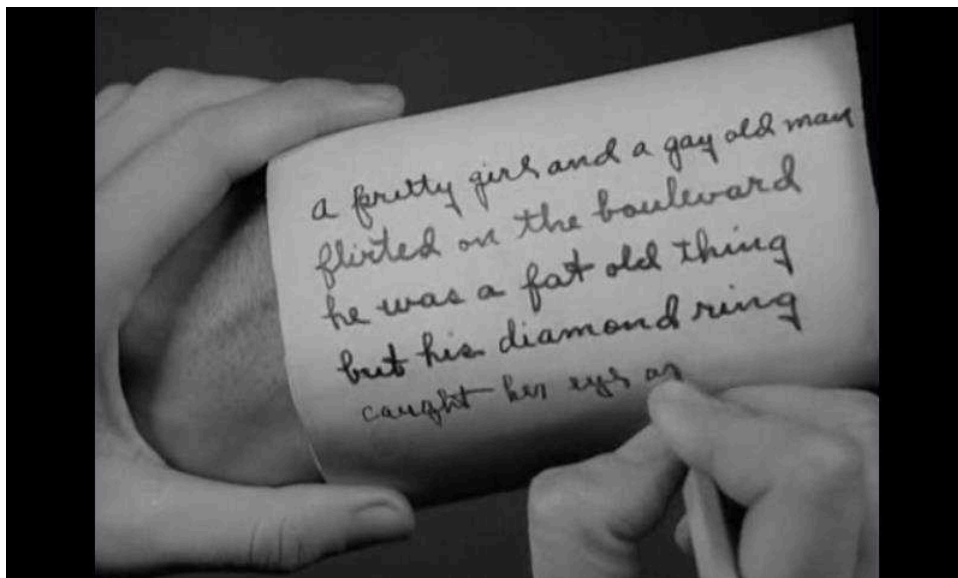 a pretty girl and a gay old man
flirted on the boulevard
he was a fat old thing
but his diamond ring
caught her eye as